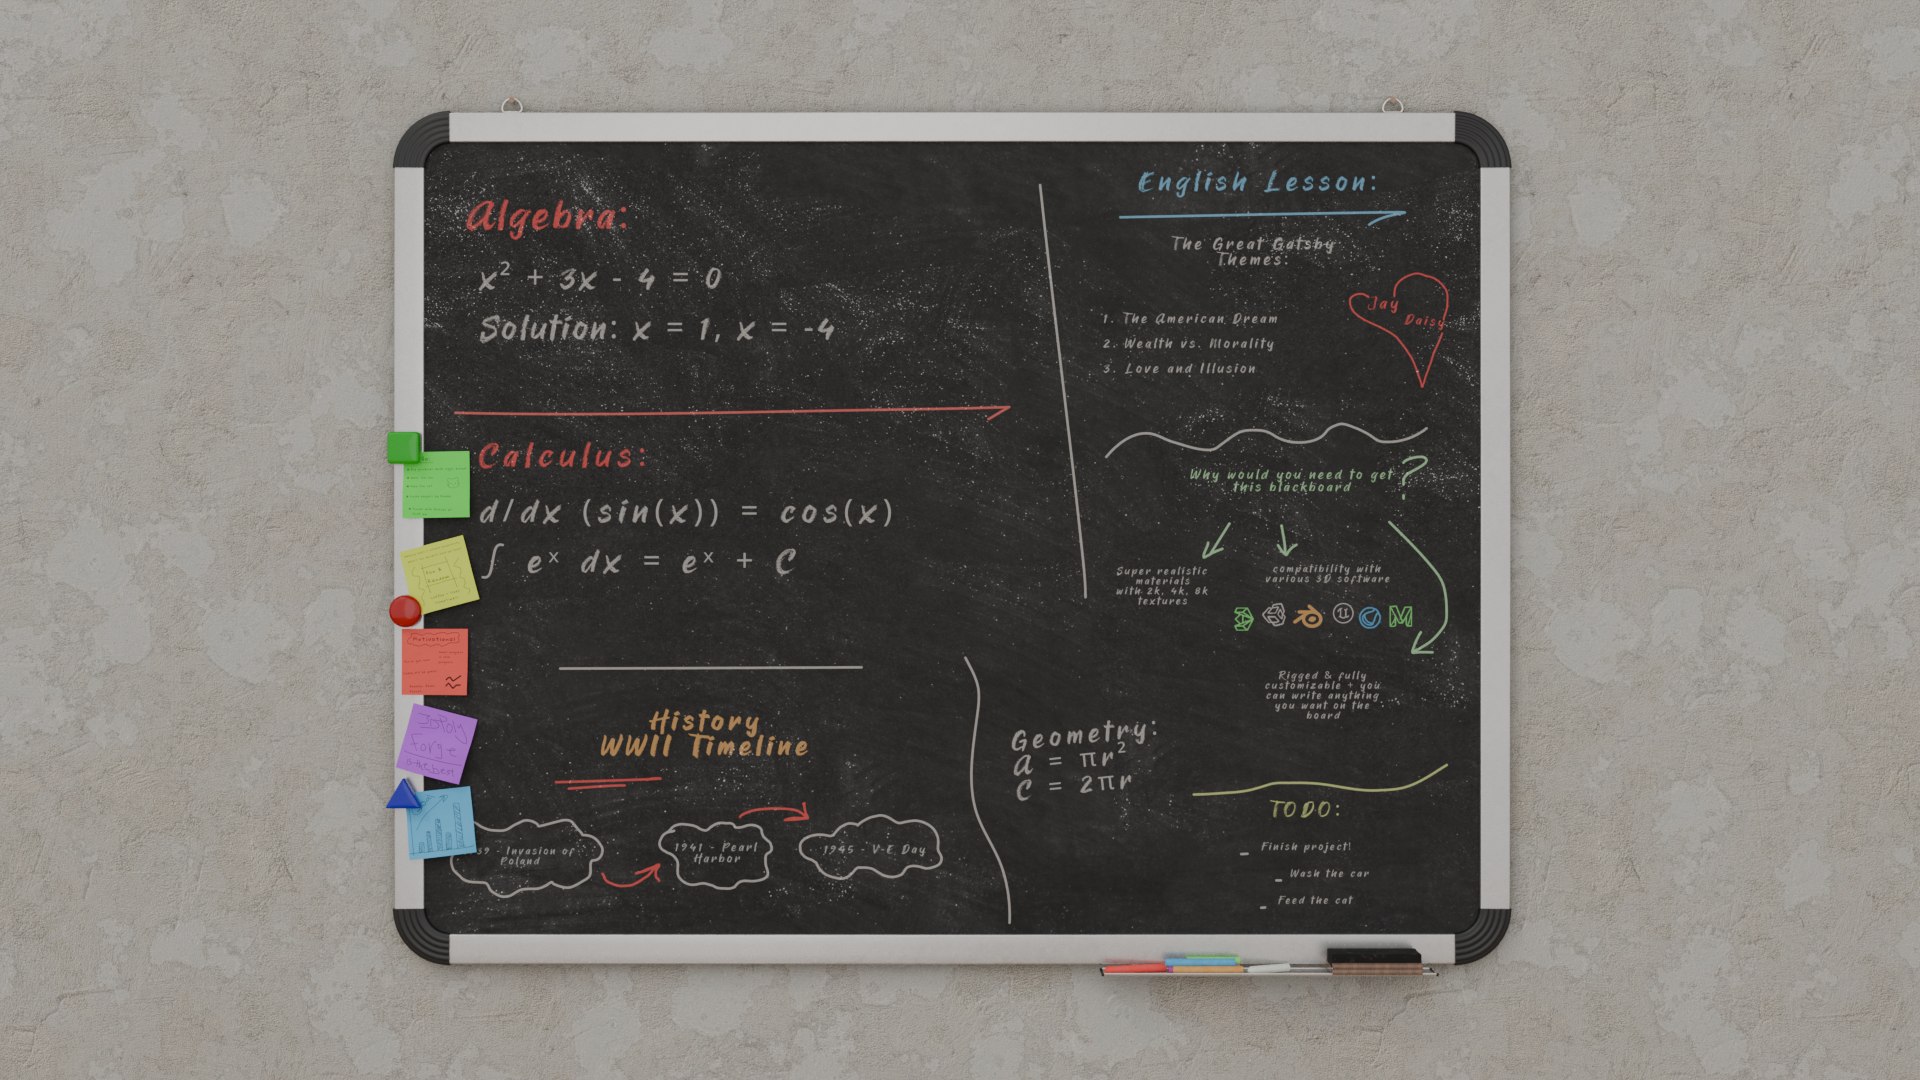 Algebra:
x² + 3x - 4 = 0
Solution: x = 1, x = -4
Calculus:
d/dx (sin(x)) = cos(x)
∫ eˣ dx = eˣ + C
History
WWII Timeline
39 - Invasion of
Poland
1941 - Pearl
Harbor
1945 - V-E Day
Geometry:
A = πr²
C = 2πr
English Lesson:
The Great Gatsby
Themes:
1. The American Dream
2. Wealth vs. Morality
3. Love and Illusion
Jay
Daisy
Why would you need to get
this blackboard
?
Super realistic
materials
with 2k, 4k, 8k
textures
compatibility with
various 3D software
Rigged & fully
customizable + you
can write anything
you want on the
board
TODO:
- Finish project!
- Wash the car
- Feed the cat
Motivational!
3DPoly
Forge
is the best